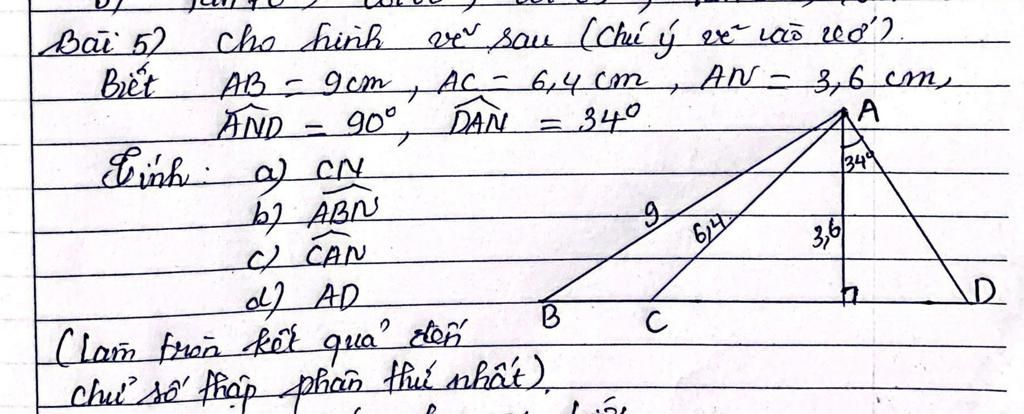 Bài 5) Cho hình vẽ sau (chú ý vẽ vào vở).
Biết AB = 9cm, AC = 6,4 cm, AN = 3,6 cm,
AND = 90°, DAN = 34°
Tính: a) CN
b) ABN
c) CAN
d) AD
(Làm tròn kết quả đến
chữ số thập phân thứ nhất).
A
34°
9
6,4
3,6
B
C
D